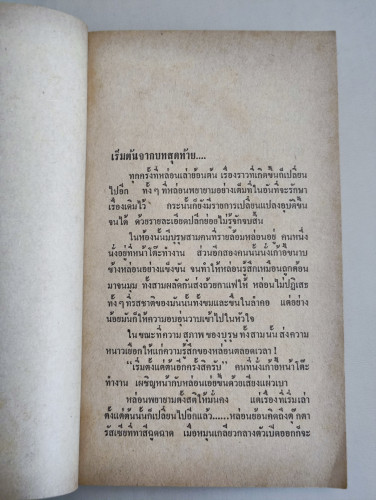 เริ่มต้นจากบทสุดท้าย....
ทุกครั้งที่หล่อนเล่าย้อนต้น เรื่องราวที่เกิดขึ้นก็เปลี่ยน
ไปอีก ทั้งๆ ที่หล่อนพยายามอย่างเต็มที่ในอันที่จะรักษา
เรื่องเดิมไว้ กระนั้นก็ยังมีรายการเปลี่ยนแปลงอุบัติขึ้น
จนได้ ด้วยรายละเอียดปลีกย่อยไม่รู้จักจบสิ้น
ในห้องนั้นมีบุรุษสามคนที่รายล้อมหล่อนอยู่ คนหนึ่ง
นั่งอยู่ที่หน้าโต๊ะทำงาน ส่วนอีกสองคนนั้นนั่งเก้าอี้ขนาบ
ข้างหล่อนอย่างแข็งขัน จนทำให้หล่อนรู้สึกเหมือนถูกต้อน
มาจนมุม ทั้งสามผลัดกันส่งถ้วยกาแฟให้ หล่อนไม่ปฏิเสธ
ทั้งๆ ที่รสชาติของมันนั้นทั้งขมและขื่นในลำคอ แต่อย่าง
น้อยมันก็ให้ความอบอุ่นวาบเข้าไปในหัวใจ
ในขณะที่ความสุภาพของบุรุษทั้งสามนั้น ส่งความ
หนาวเยือกให้แก่ความรู้สึกของหล่อนตลอดเวลา !
"เริ่มตั้งแต่ต้นอีกครั้งสิครับ" คนที่นั่งเก้าอี้หน้าโต๊ะ
ทำงาน เผชิญหน้ากับหล่อนเอ่ยขึ้นด้วยเสียงแผ่วเบา
หล่อนพยายามตั้งสติให้มั่นคง แต่เรื่องที่เริ่มเล่า
ตั้งแต่ต้นนั้นก็เปลี่ยนไปอีกแล้ว......หล่อนย้อนคิดถึงตุ๊กตา
รัสเซียที่ทาสีฉูดฉาด เมื่อหมุนเกลียวกลางตัวเปิดออกก็จะ